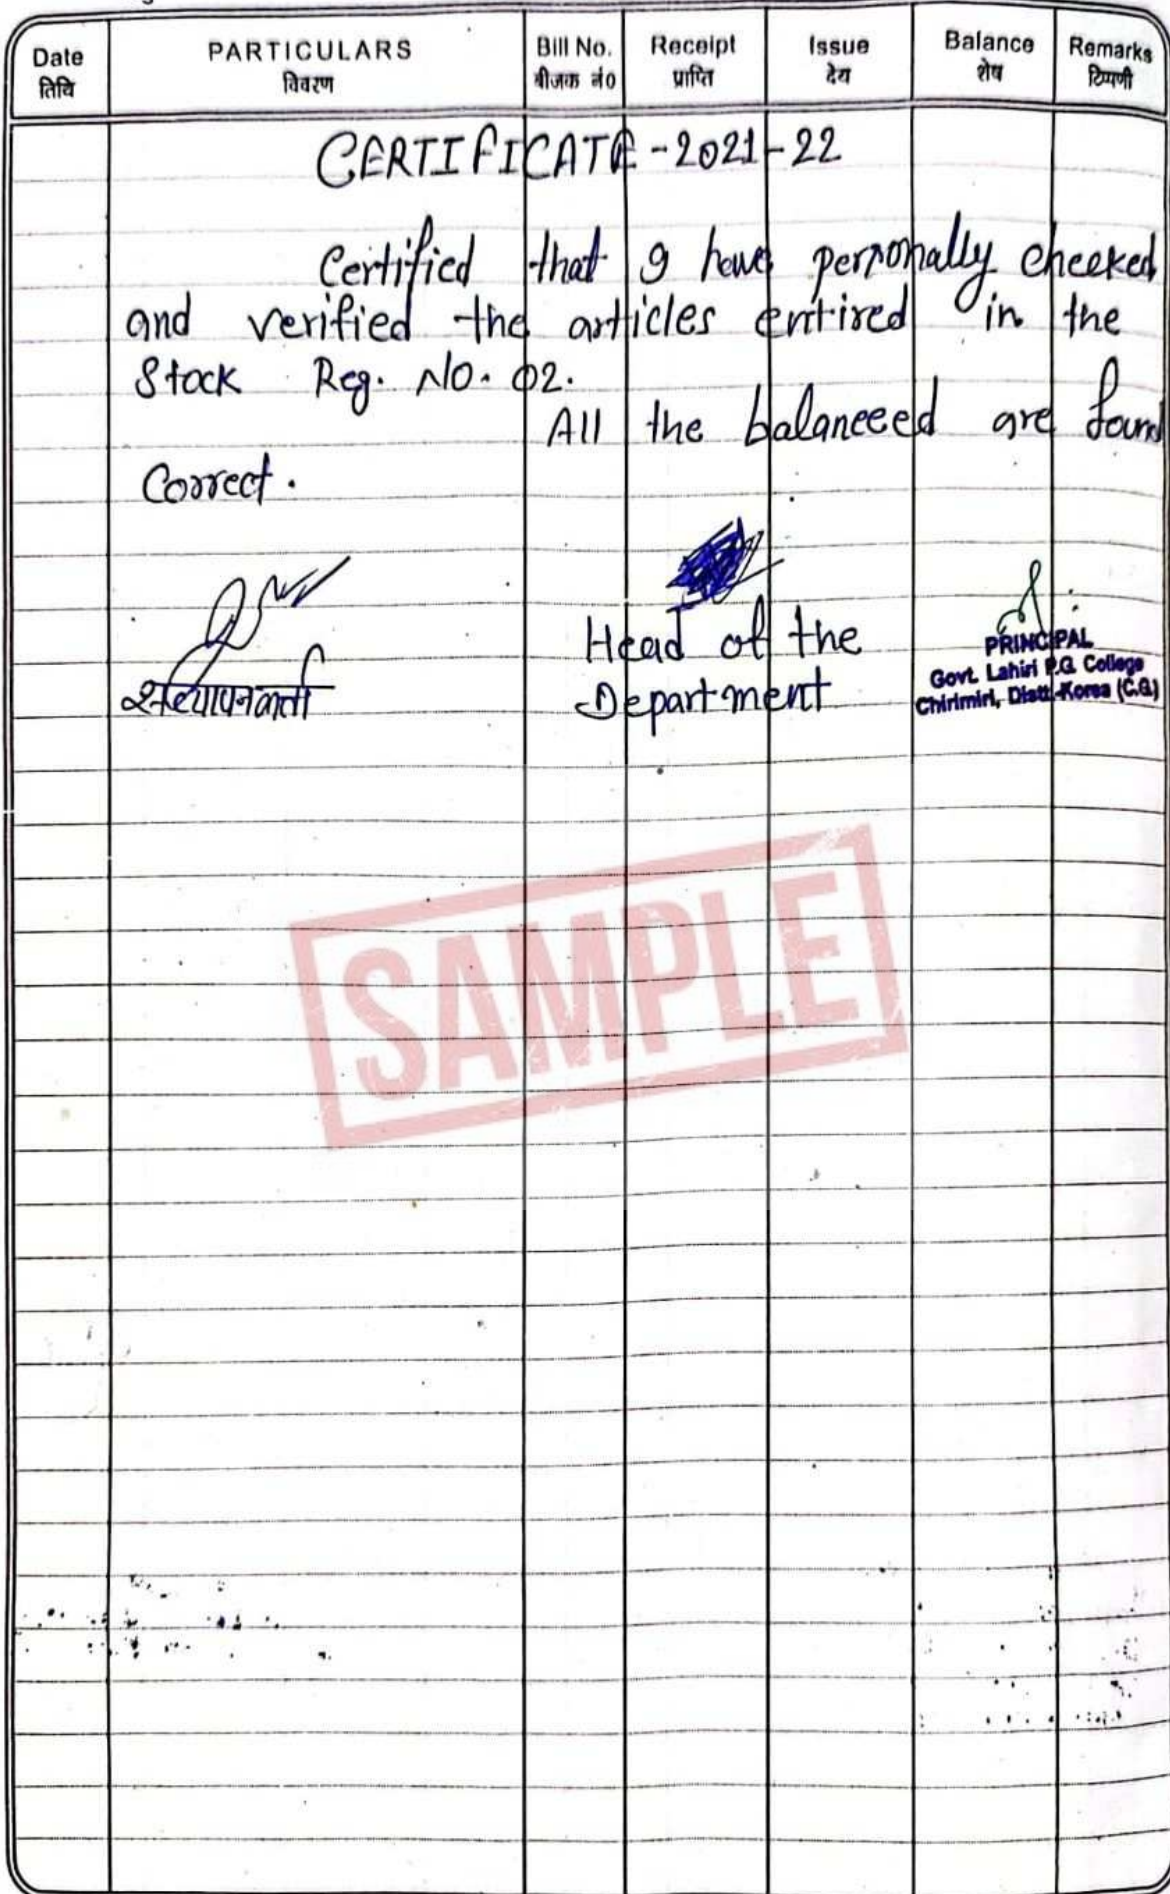 Date PARTICULARS Bill No. Receipt Issue Balance Remarks
तिथि विवरण बीजक नं० प्राप्ति देय शेष टिप्पणी
CERTIFICATE - 2021-22
Certified that I have personally checked
and verified the articles entired in the
Stock Reg. No. 02.
All the balanceed are found
Correct.
सत्यापनकर्ता
Head of the
Department
PRINCIPAL
Govt. Lahiri P.G. College
Chirimiri, Distt.-Korea (C.G.)
SAMPLE